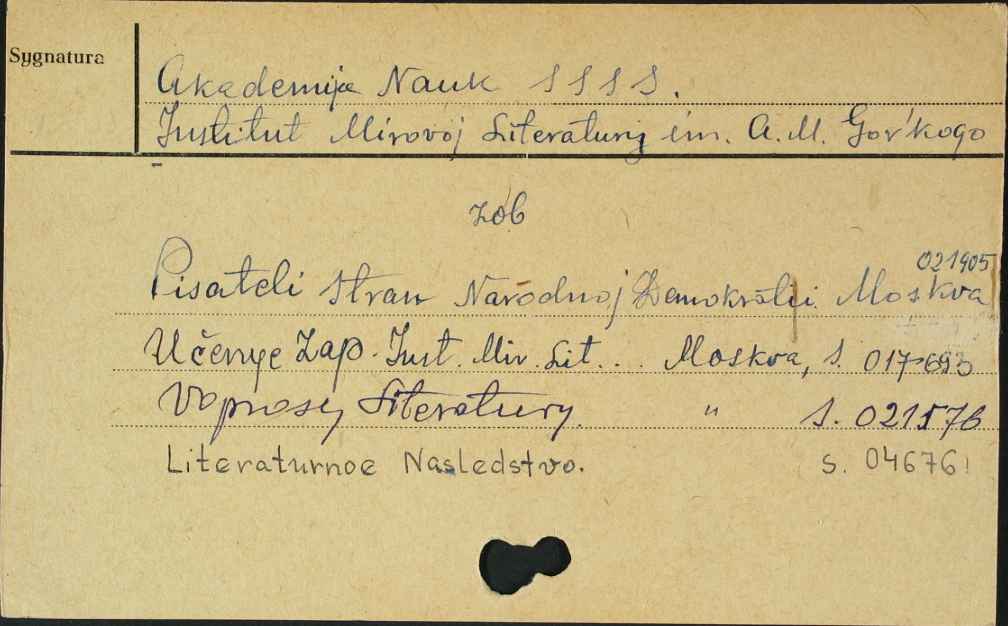 Sygnatura
Akademija Nauk SSSS.
Institut Mirovoj Literatury im. A.M. Gor'kogo
zob
021905
Pisateli stran Narodnoj Demokratii. Moskva
Učenye Zap. Inst. Mir. Lit... Moskva, S. 017693
Voprosy Literatury. " S. 021576
Literaturnoe Nasledstvo. S. 04676!